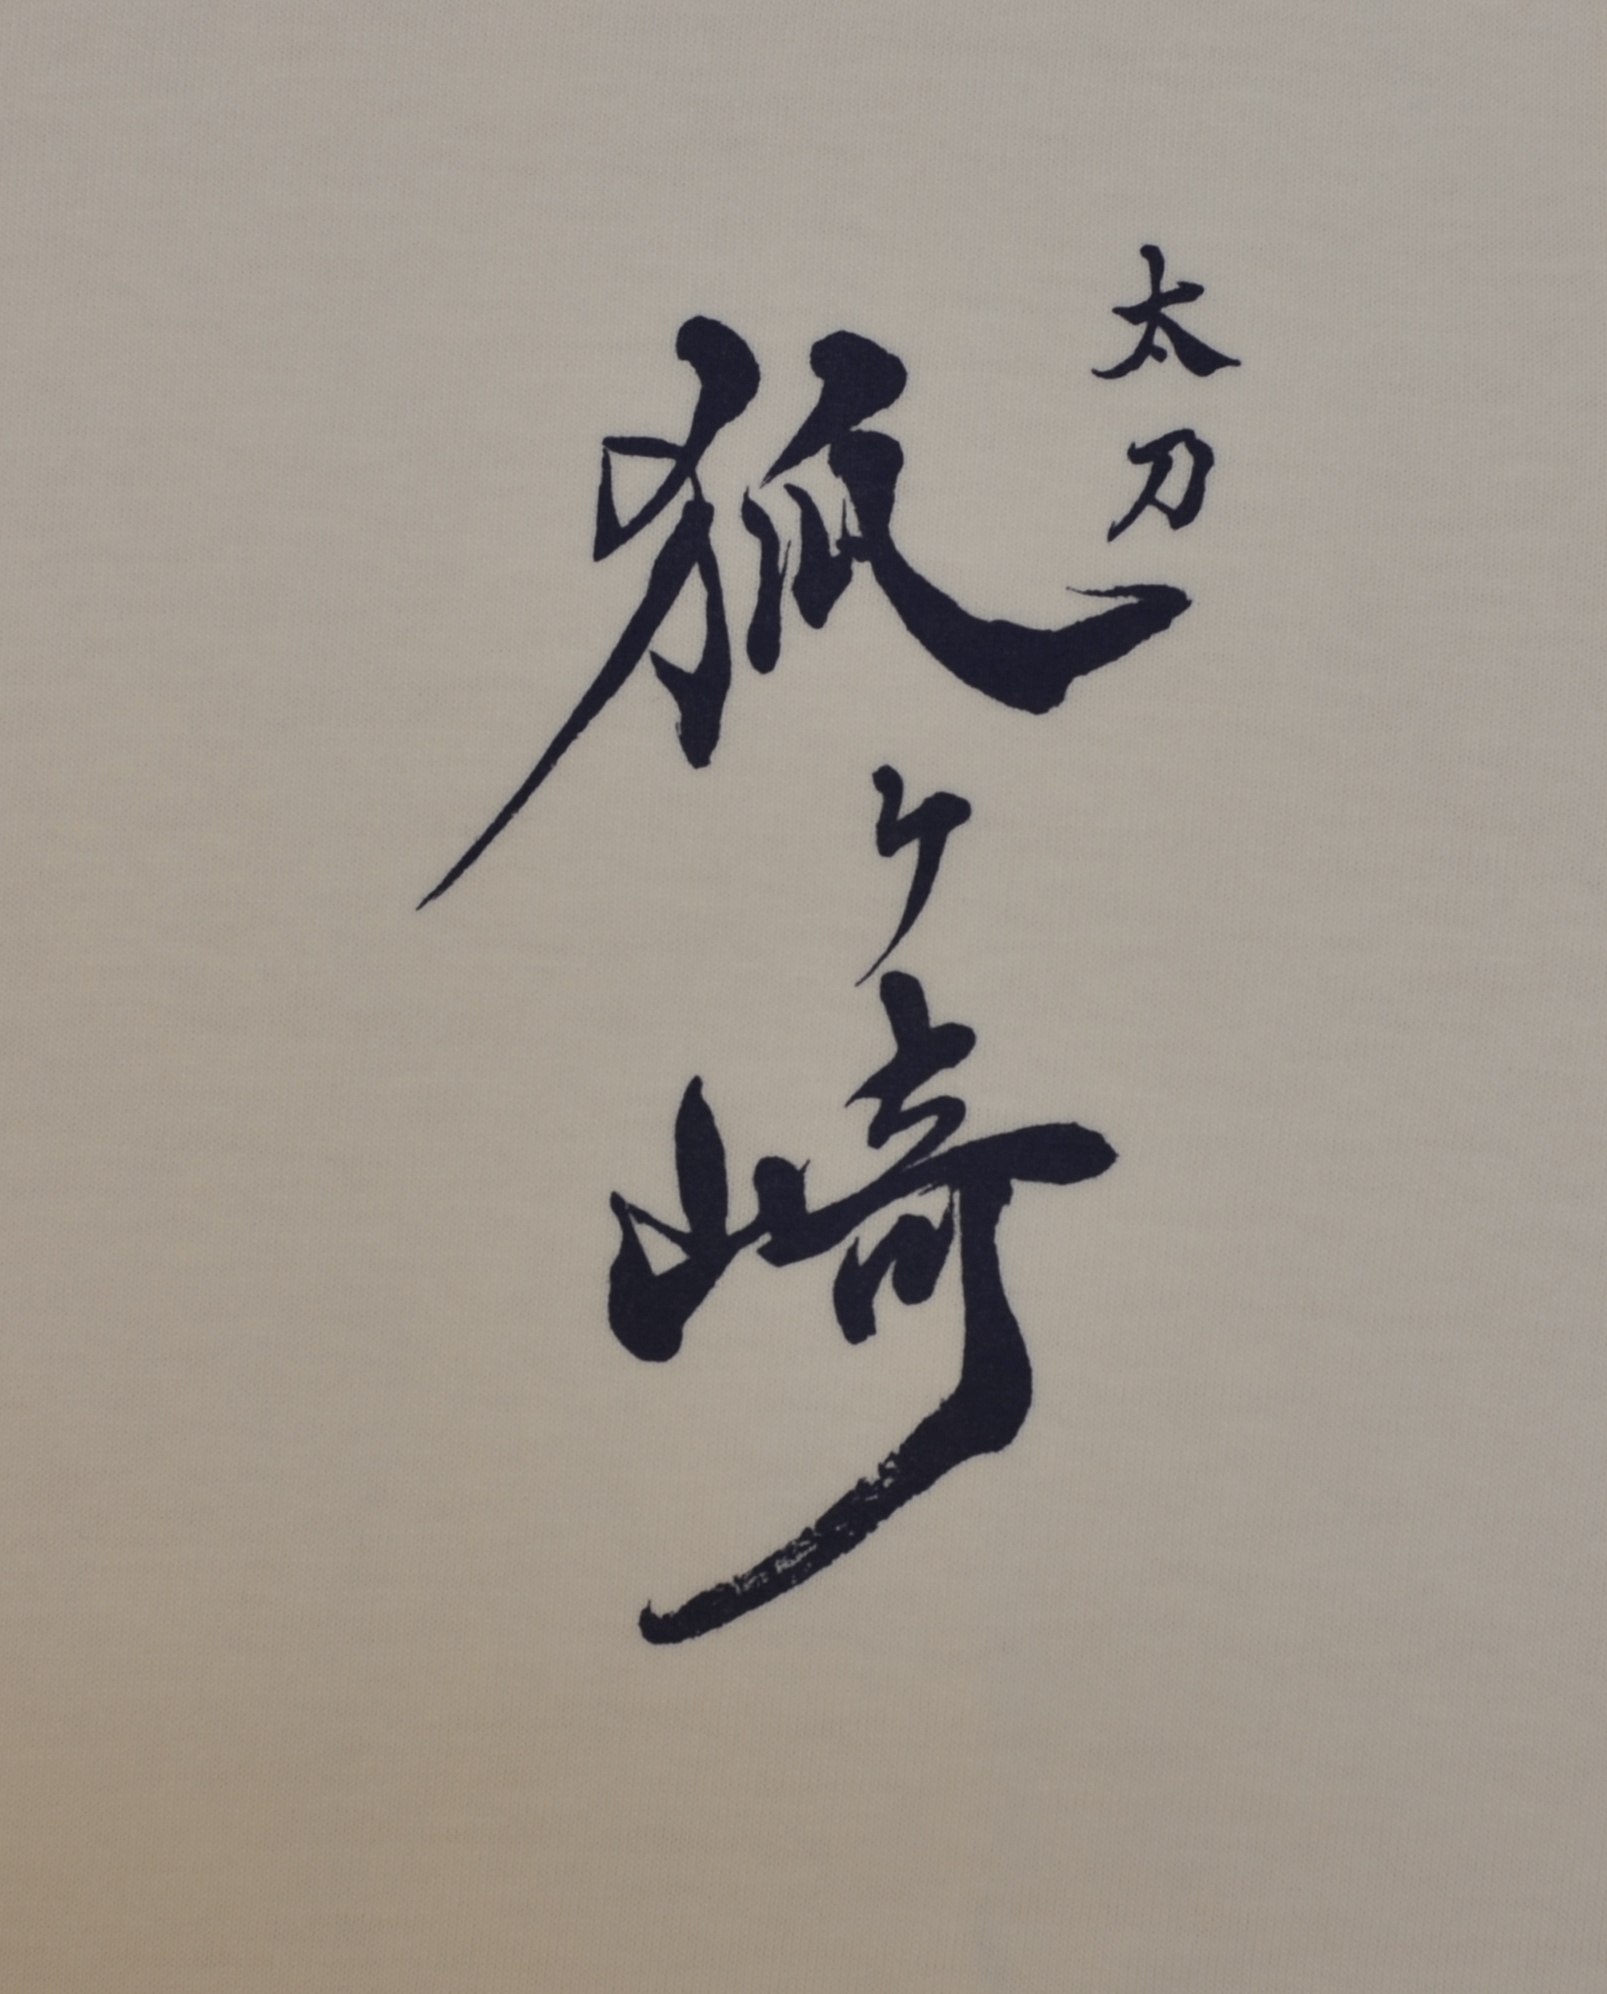 太刀
狐ヶ崎